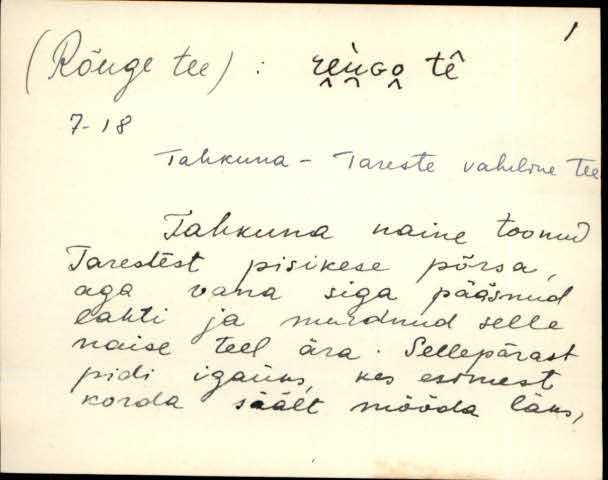 1
(Rõuge tee) : rèùGo tê
7-18
Tahkuna - Tareste vaheline tee
Tahkuna naine toonud
Tarestest pisikese põrsa,
aga vana siga pääsnud
lahti ja murdnud selle
naise teel ära. Sellepärast
pidi igaüks, kes esimest
korda säält mööda läks,